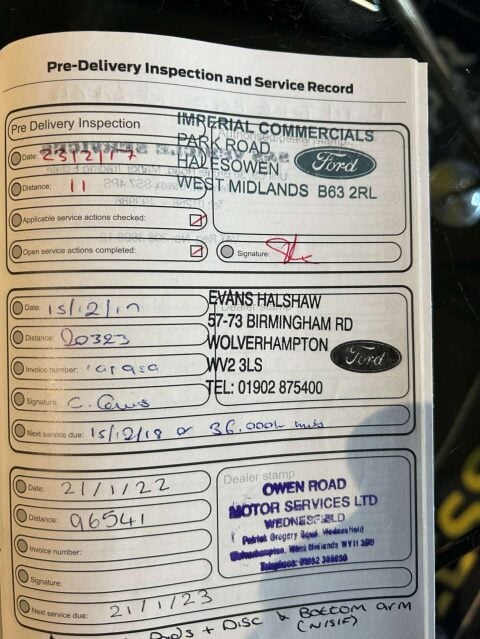 Pre-Delivery Inspection and Service Record
Pre Delivery Inspection
IMRERIAL COMMERCIALS
PARK ROAD
HALESOWEN
WEST MIDLANDS B63 2RL
Ford
Date: 23/2/17
Distance: 11
Applicable service actions checked:
Open service actions completed:
Signature:
Date: 15/12/17
Distance: 20323
Invoice number:
Signature:
Next service due: 15/12/18 or 36.000
EVANS HALSHAW
57-73 BIRMINGHAM RD
WOLVERHAMPTON
WV2 3LS
TEL: 01902 875400
Ford
Date: 21/1/22
Distance: 96541
Invoice number:
Signature:
Next service due: 21/1/23
Dealer stamp
OWEN ROAD
MOTOR SERVICES LTD
WEDNESFIELD
Patrick Gregory Road, Wednesfield
Wolverhampton, West Midlands WV11
Telephone: 01902
+ DISC & BOTTOM arm
(N/S/F)